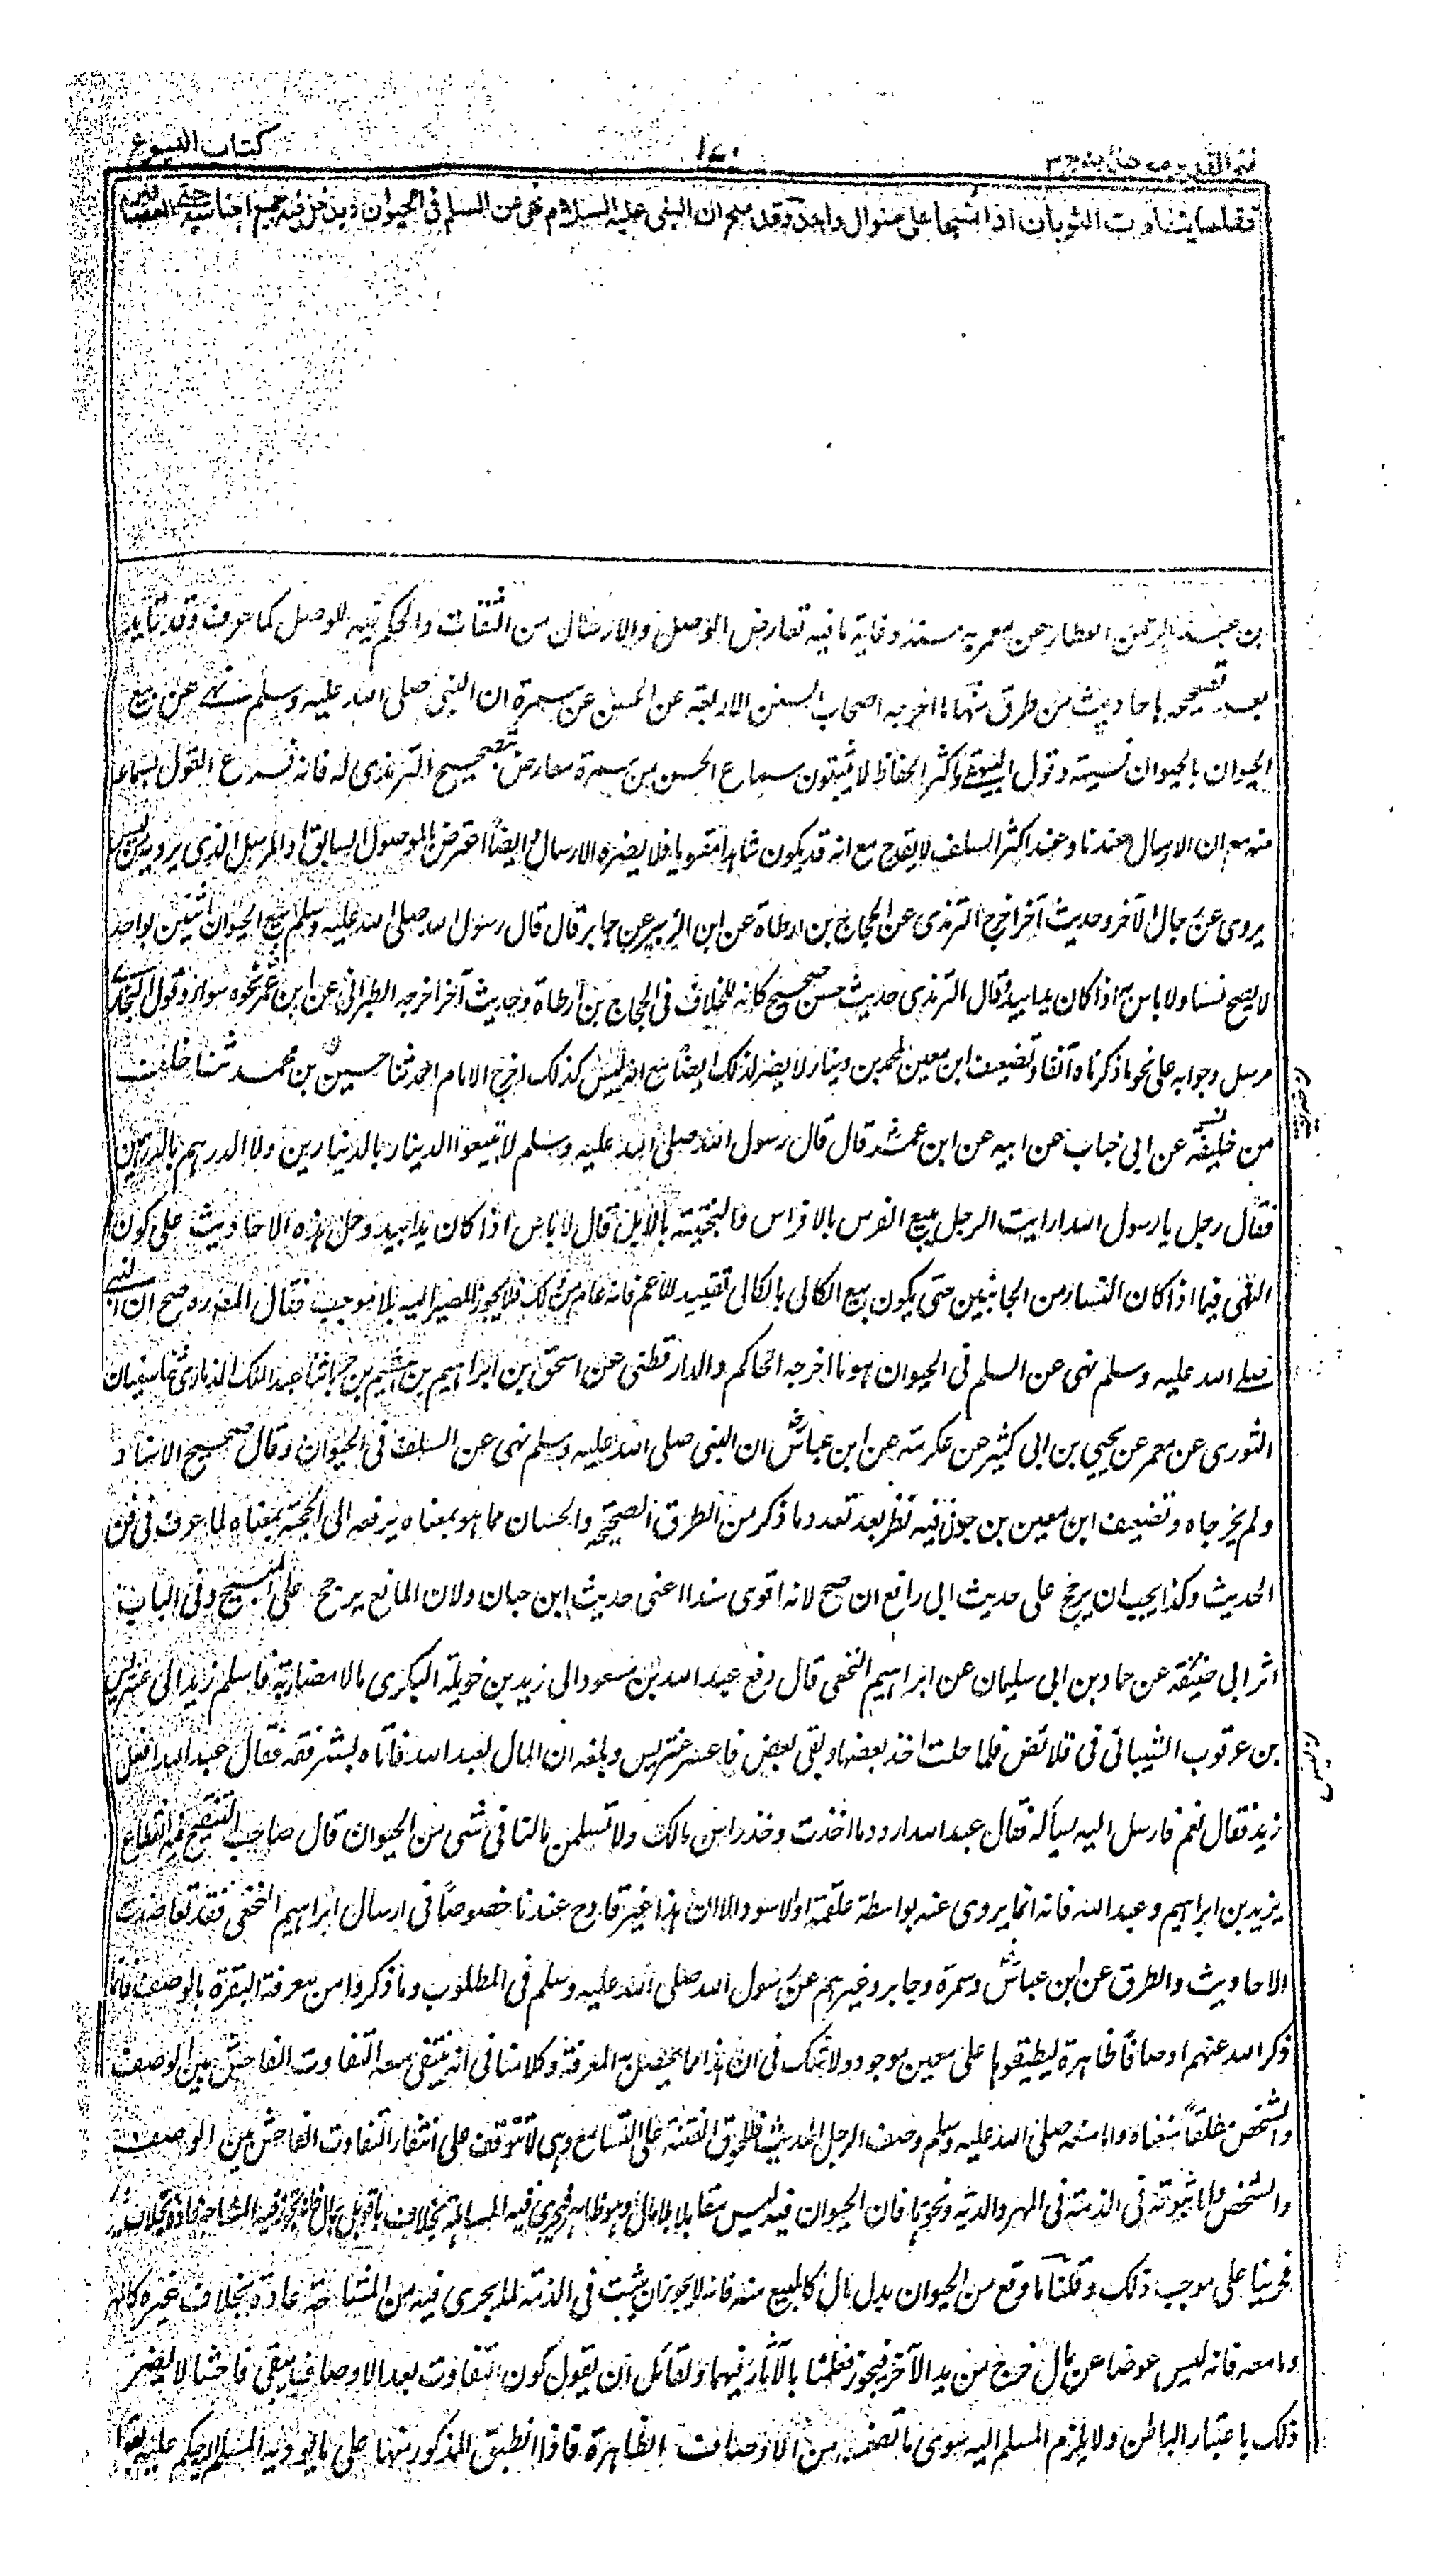 كتاب البيوع
فقلما يتفاوت الثوبان اذا نسجا على منوال واحد وقد صح ان النبى عليه السلام نهى عن السلم فى الحيوان ويدخل فيه جميع اجناسه حتى العصافير
بن عبد الرحمن العطار عن معمر به مسندا وغاية ما فيه تعارض الوصل والارسال من الثقات والحكم فيه للوصل كما عرف وقد تأيد
بعد تصحيحه باحاديث من طرق منها ما اخرجه اصحاب السنن الاربعة عن الحسن عن سمرة ان النبى صلى الله عليه وسلم نهى عن بيع
الحيوان بالحيوان نسيئة وقول البيهقى واكثر الحفاظ لا يثبتون سماع الحسن من سمرة معارض بتصحيح الترمذى له فانه فرع القول بسماعه
منه مع ان الارسال عندنا وعند اكثر السلف لا يقدح مع انه قد يكون شاهدا مقويا فلا يضره الارسال ايضا اعترض بالموصول السابق او المرسل الذى يرويه ليس
يروى عن رجال الآخر وحديث آخر اخرج الترمذى عن الحجاج بن ارطاة عن ابن الزبير عن جابر قال قال رسول الله صلى الله عليه وسلم بيع الحيوان اثنين بواحد
لا يصح نسا ولا باس به اذا كان يدا بيد قال الترمذى حديث حسن صحيح كانه للخلاف فى الحجاج بن ارطاة وحديث آخر اخرجه الطبرانى عن ابن عمر نحوه سواء وقول البخارى
مرسل وجوابه على نحو ما ذكرناه آنفا وتضعيف ابن معين لمحمد بن دينار لا يضر لذلك ايضا مع انه ليس كذلك اخرج الامام احمد ثنا حسين بن محمد ثنا خلف
من خليفة عن ابى جناب عن ابيه عن ابن عمر قال قال رسول الله صلى الله عليه وسلم لا تبيعوا الدينار بالدينارين ولا الدرهم بالدرهمين
فقال رجل يا رسول الله ارايت الرجل يبيع الفرس بالافراس والبختية بالابل قال لا باس اذا كان يدا بيد وحمل هذه الاحاديث على كون
النهى فيما اذا كان النسا من الجانبين حتى يكون بيع الكالى بالكالى تقييد للاعم فانه عام من ذلك فلا يجوز المصير اليه بلا موجب فقال المصنف وصح ان النبى
صلى الله عليه وسلم نهى عن السلم فى الحيوان هو ما اخرجه الحاكم والدارقطنى عن اسحق بن ابراهيم بن ثنا عبد الملك الذمارى ثنا سفيان
الثورى عن معمر عن يحيى بن ابى كثير عن عكرمة عن ابن عباس ان النبى صلى الله عليه وسلم نهى عن السلف فى الحيوان وقال صحيح الاسناد
ولم يخرجاه وتضعيف ابن معين بن جوتى فيه نظر بعد تعدد ما ذكر من الطرق الصحيحة والحسان مما هو بمعناه يرفعه الى الحجية بمعناه لما عرف فى فن
الحديث وكذا يجب ان يرجح على حديث ابى رافع ان صح لانه اقوى سندا اعنى حديث ابن حبان ولان المانع يرجح على المبيح وفى الباب
اثر ابى حنيفة عن حماد بن ابى سليمان عن ابراهيم النخعى قال دفع عبد الله بن مسعود الى زيد بن خويلة البكرى مالا مضاربة فاسلم زيد الى عتريس
بن عرقوب الشيبانى فى قلائص فلما حلت اخذ بعضها وبقى بعض فاعسر عتريس وبلغه ان المال لعبد الله فاتاه يسترفقه فقال عبد الله افعل
زيد فقال نعم فارسل اليه يسأله فقال عبد الله اردد ما اخذت وخذ راس مالك ولا تسلمن مالنا فى شى من الحيوان قال صاحب التنقيح فيه انقطاع
يزيد بن ابراهيم وعبد الله فانه انما يروى عنه بواسطة علقمة او الاسود الا ان هذا غير قادح عندنا خصوصا فى ارسال ابراهيم النخعى فقد تعاضدت
الاحاديث والطرق عن ابن عباس وسمرة وجابر وغيرهم عن رسول الله صلى الله عليه وسلم فى المطلوب وما ذكروا من معرفة البقرة بالوصف فانما
ذكر الله عنهم اوصافا ظاهرة ليطبقوها على معين موجود ولا شك فى ان هذا مما يحصل به المعرفة وكلامنا فى انه ينتفى معه التفاوت الفاحش بين الوصف
والشخص مطلقا منعناه واما منعه صلى الله عليه وسلم وصف الرجل الحديث فلخوف الفتنة على التسامع وهى لا تتوقف على انتفاء التفاوت الفاحش بين الوصف
والشخص واما ثبوته فى الذمة فى المهر والدية ونحوها فان الحيوان فيه ليس مقابلا بالمال وهو ظاهر فيجرى فيه المساهلة بخلاف ما قوبل بمال فانه يجرى فيه المشاحة عادة
فجرينا على موجب ذلك وقلنا ما وقع من الحيوان بدل مال كالمبيع منه فانه لا يجوز ان يثبت فى الذمة لما يجرى فيه من المشاحة عادة بخلاف غيره كالمهر
وما معه فانه ليس عوضا عن مال خرج من يد الآخر فيجوز فعلمنا بالآثار فيهما ولقائل ان يقول كون التفاوت بعد الاوصاف يبقى فاحشا لا يضر
ذلك باعتبار الباطن ولا يلزم المسلم اليه سوى ما تضمنه من الاوصاف الظاهرة فاذا انطبق المذكور منها على ما يؤديه المسلم اليه حكم عليه